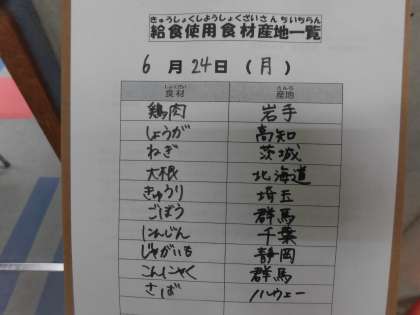 きゅうしょくしようしょくざいさんちいちらん
給食使用食材産地一覧
6月24日(月)
しょくざい さんち
食材 産地
鶏肉 岩手
しょうが 高知
ねぎ 茨城
大根 北海道
きゅうり 埼玉
ごぼう 群馬
にんじん 千葉
じゃがいも 静岡
こんにゃく 群馬
さば ノルウェー